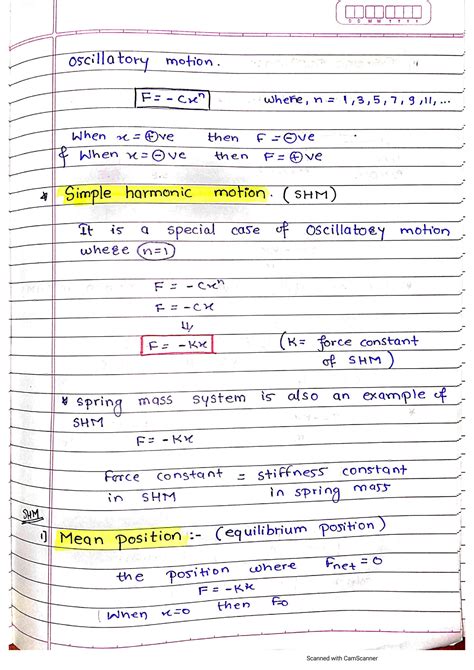 D D M M Y Y Y Y
Oscillatory motion.
F = - Cxⁿ where, n = 1,3,5,7,9,11,...
When x = ⊕ve then F = ⊖ve
& When x = ⊖ve then F = ⊕ve
* Simple harmonic motion. (SHM)
It is a special case of Oscillatory motion
where n=1
F = - Cxⁿ
F = - Cx
⇓
F = -Kx (K = force constant
of SHM)
* spring mass system is also an example of
SHM
F = -Kx
Force constant = stiffness constant
in SHM in spring mass
SHM
1] Mean position :- (equilibrium position)
the position where Fnet = 0
F = -Kx
When x=0 then F=0
Scanned with CamScanner